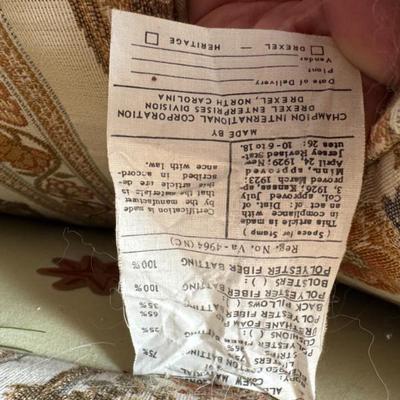 NEW MATERIAL
COTTON BATTING 75%
LINTERS
URETHANE FOAM 65%
POLYESTER FIBER BATTING 35%
BACK PILLOWS ( ):
POLYESTER FIBER BATTING 100%
BOLSTERS ( ):
POLYESTER FIBER BATTING 100%
Reg. No. Va - 4964 (NC)
(Space for Stamp)
This article is made
in compliance with
an act of: Dist. of
Col. approved July
3, 1926, Kansas, ap-
proved March 1923;
Minn. approved
April 24, 1929; New
Jersey Revised Stat-
utes 26: 10-6 to 18.
Certification is made
by the manufacturer
that the materials in
this article are de-
scribed in accord-
ance with law.
MADE BY
CHAMPION INTERNATIONAL CORPORATION
DREXEL ENTERPRISES DIVISION
DREXEL, NORTH CAROLINA
Date of Delivery
Plant
Vendor
DREXEL — HERITAGE